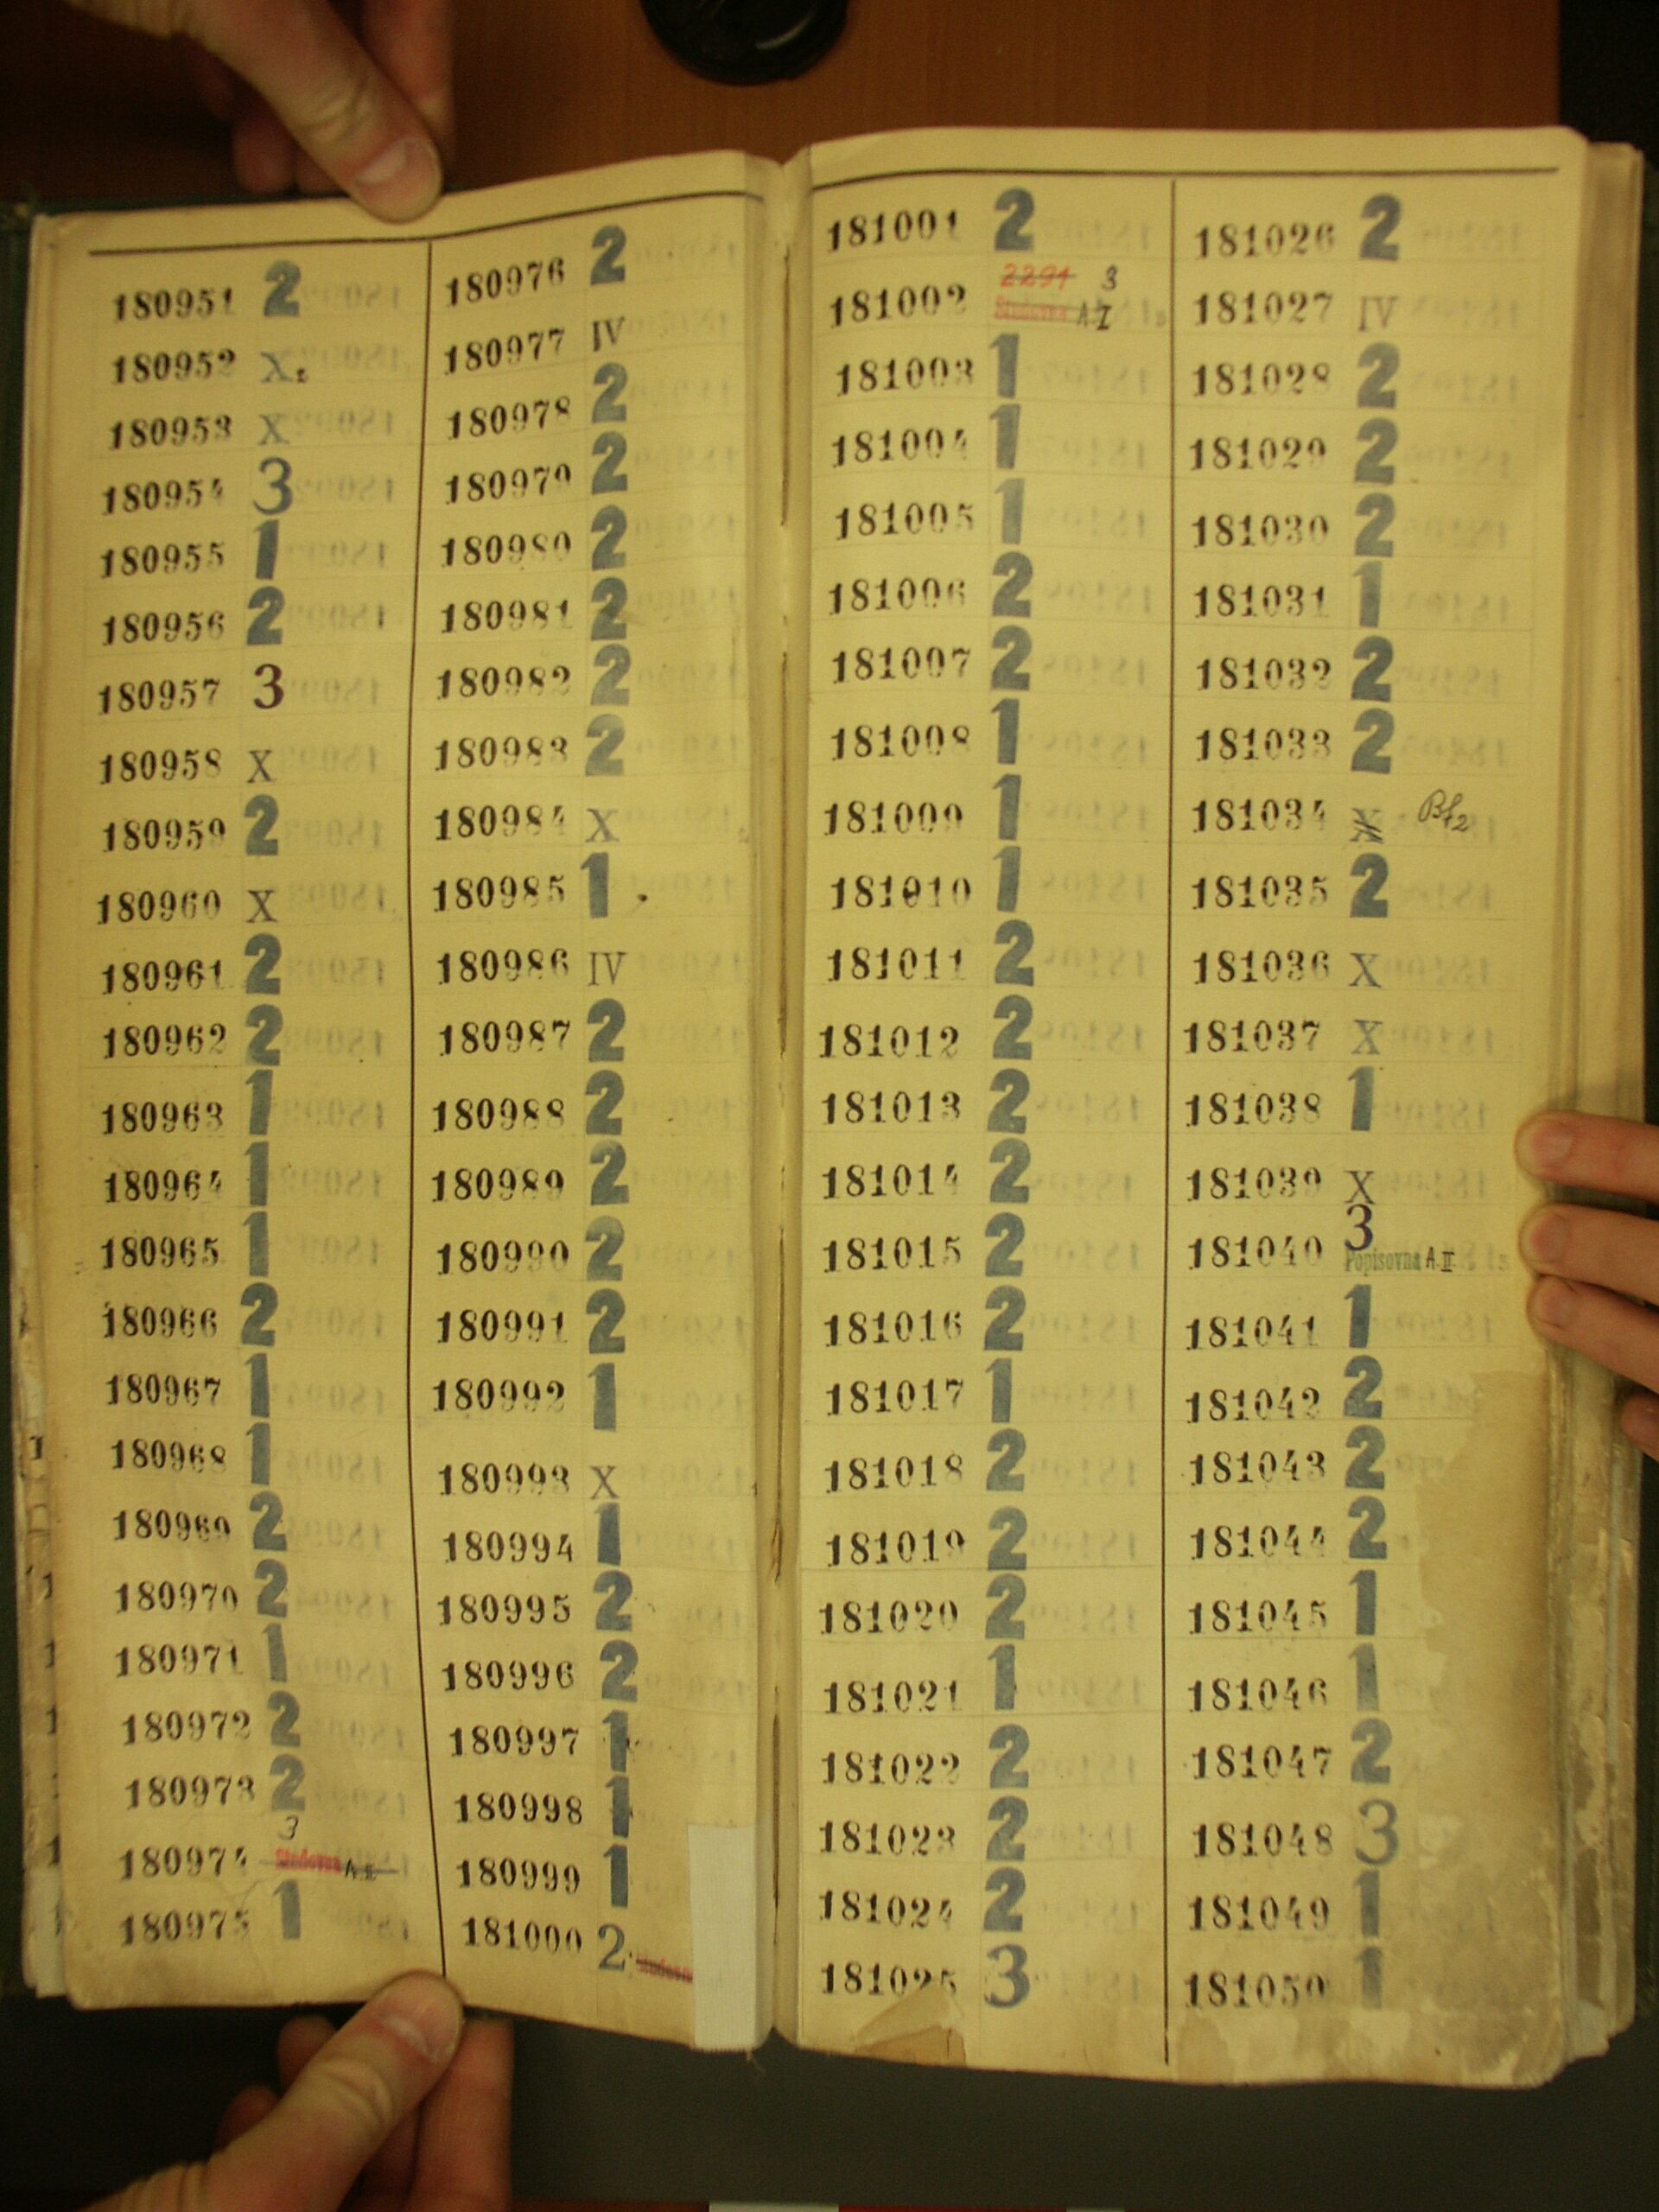 180951 2
180952 X.
180953 X
180954 3
180955 1
180956 2
180957 3
180958 X
180959 2
180960 X
180961 2
180962 2
180963 1
180964 1
180965 1
180966 2
180967 1
180968 1
180969 2
180970 2
180971 1
180972 2
180973 2
3
180974 Studovna A II
180975 1
180976 2
180977 IV
180978 2
180979 2
180980 2
180981 2
180982 2
180983 2
180984 X
180985 1
180986 IV
180987 2
180988 2
180989 2
180990 2
180991 2
180992 1
180993 X
180994 1
180995 2
180996 2
180997 1
180998 1
180999 1
181000 2
181001 2
2291 3
181002 Studovna A I
181003 1
181004 1
181005 1
181006 2
181007 2
181008 1
181009 1
181010 1
181011 2
181012 2
181013 2
181014 2
181015 2
181016 2
181017 1
181018 2
181019 2
181020 2
181021 1
181022 2
181023 2
181024 2
181025 3
181026 2
181027 IV
181028 2
181029 2
181030 2
181031 1
181032 2
181033 2
181034 X
181035 2
181036 X
181037 X
181038 1
181039 X
181040 3
Popisovna A II
181041 1
181042 2
181043 2
181044 2
181045 1
181046 1
181047 2
181048 3
181049 1
181050 1